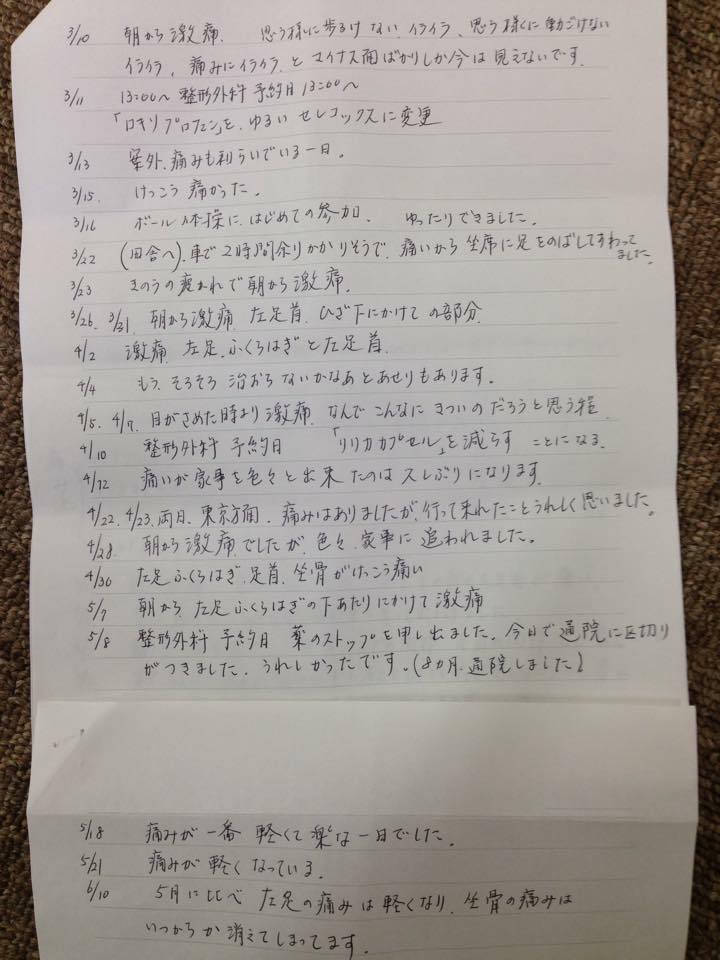 3/10 朝から激痛、 思う様に歩るけない、イライラ、思う様くに動ごけない
イライラ、痛みにイライラ、とマイナス面ばかりしか今は見えないです。
3/11 13:00〜 整形外科 予約日 13:00〜
「ロキソプロフェン」を、ゆるいセレコックスに変更
3/13 案外、痛みも和らいでいる一日。
3/15. けっこう痛かった。
3/16 ボール体操に、はじめての参加、 ゆったりできました。
3/22 (田舎へ)、車で2時間余りかかりそうで、痛いから坐席に足をのばしてすわって
ました。
3/23 きのうの疲かれで朝から激痛、
3/26. 3/31. 朝から激痛 左足首、ひざ下にかけての部分
4/2 激痛 左足、ふくらはぎと左足首、
4/4 もう、そろそろ治おらないかなあとあせりもあります。
4/5. 4/7. 目がさめた時より激痛、なんでこんなにきついのだろうと思う程
4/10 整形外科 予約日 「リリカカプセル」を減らすことになる
4/12 痛いが家事を色々と出来たのは久しぶりになります
4/22. 4/23. 両日、東京方面、痛みはありましたが、行って来れたことうれしく思いました。
4/28. 朝から激痛でしたが、色々、家事に追われました。
4/30 左足ふくらはぎ、足首、坐骨がけっこう痛い
5/7 朝から、左足ふくらはぎの下あたりにかけて激痛
5/8 整形外科 予約日 薬のストップを申し出ました、今日で通院に区切り
がつきました、うれしかったです。(8カ月、通院しました)
5/18 痛みが一番軽くて楽な一日でした。
5/21 痛みが軽くなっている、
6/10 5月に比べ左足の痛みは軽くなり、坐骨の痛みは
いつからか消えてしまってます。